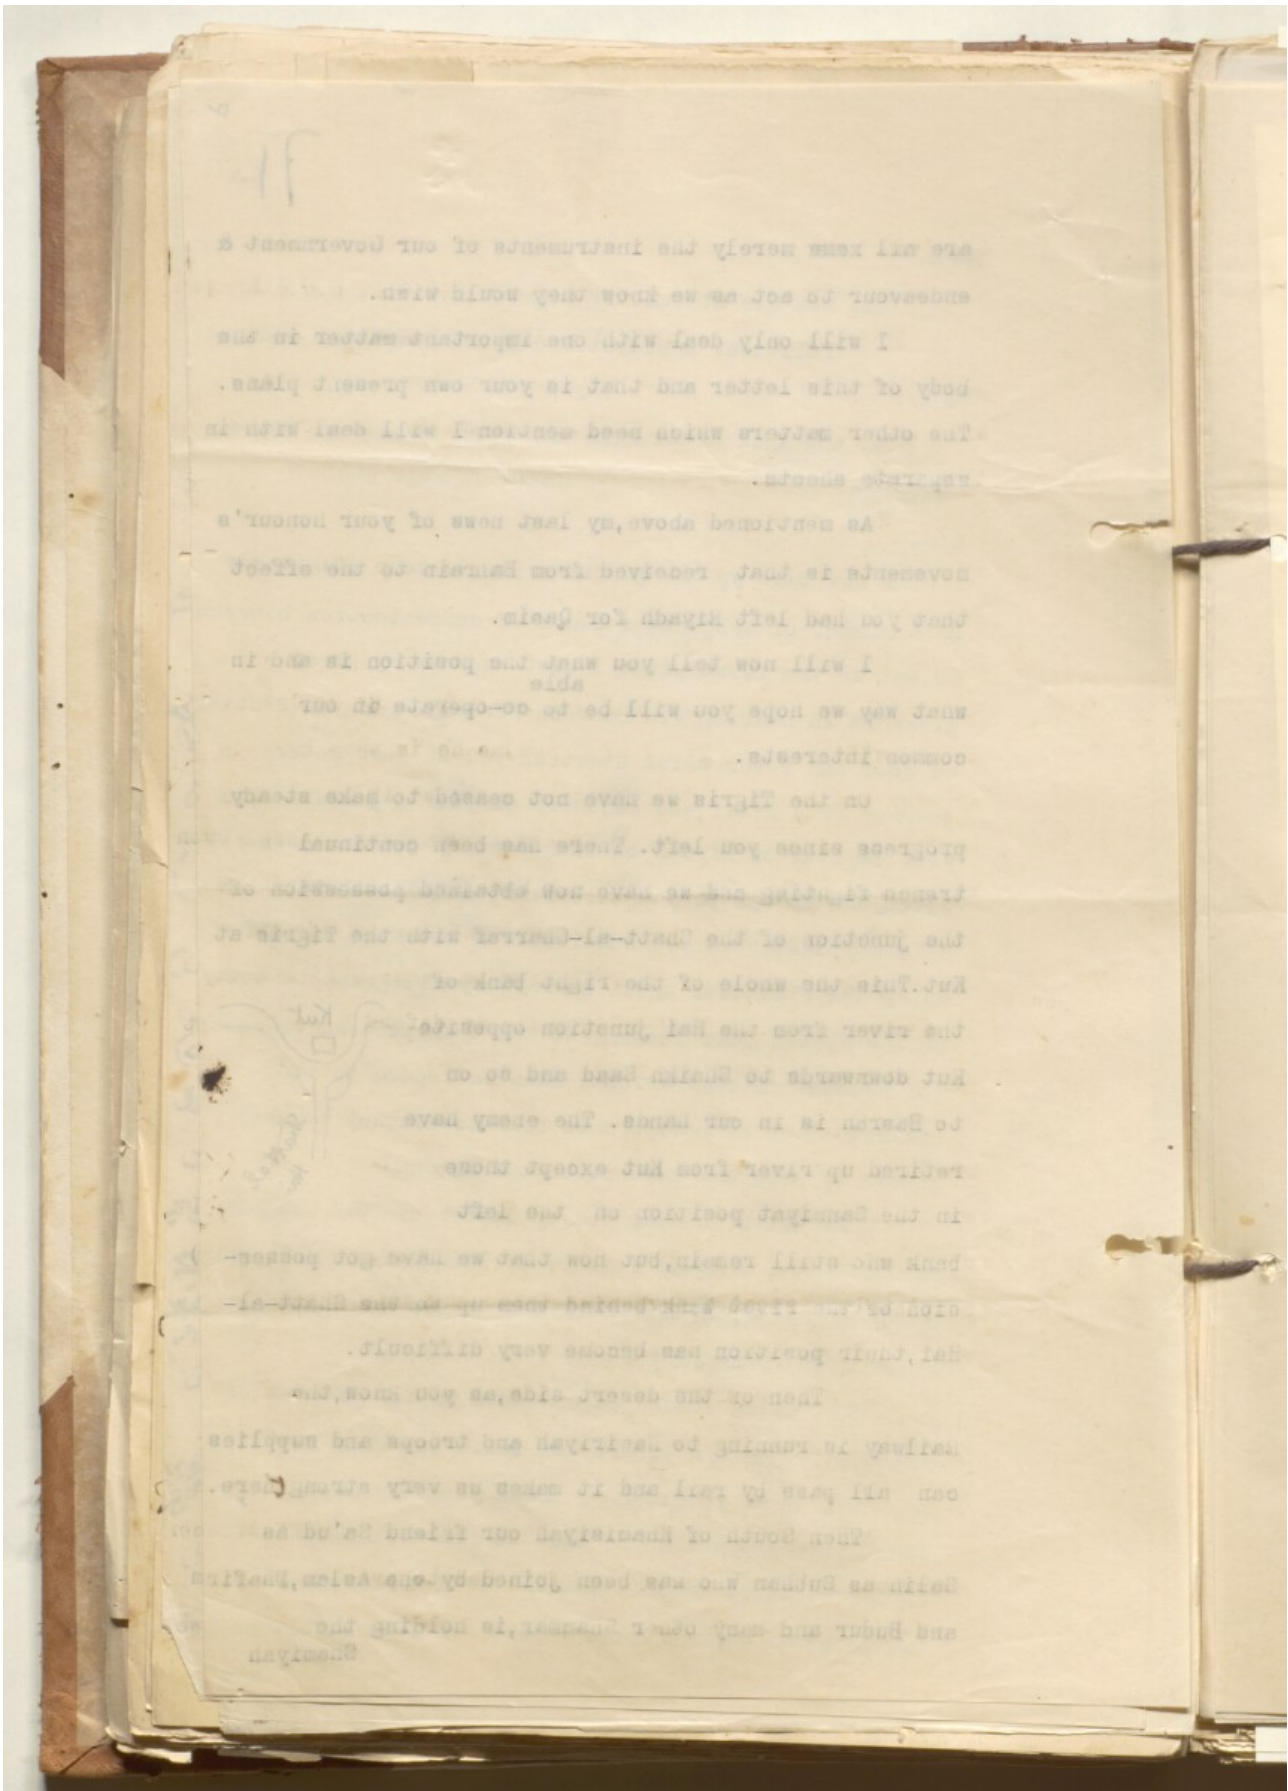 71
are all xxxx merely the instruments of our Government &
endeavour to act as we know they would wish.
I will only deal with one important matter in the
body of this letter and that is your own present plans.
The other matters which need mention I will deal with in
separate sheets.
As mentioned above, my last news of your honour's
movements is that received from Bahrain to the effect
that you had left Riyadh for Qasim.
I will now tell you what the position is and in
able
what way we hope you will be to co-operate in our
common interests.
On the Tigris we have not ceased to make steady
progress since you left. There has been continual
trench fighting and we have now obtained possession of
the junction of the Shatt-al-Gharraf with the Tigris at
Kut. This the whole of the right bank of
the river from the Hai junction opposite
Kut downwards to Shaikh Saad and so on
to Basrah is in our hands. The enemy have
retired up river from Kut except those
in the Sanniyat position on the left
bank who still remain, but now that we have got posses-
sion of the right bank behind them up to the Shatt-al-
Hai, their position has become very difficult.
Then on the desert side, as you know, the
Railway is running to Nasiriyah and troops and supplies
can all pass by rail and it makes us very strong there.
Then South of Khamisiyah our friend Sa'ud as
Salih as Subhan who has been joined by the Aslam, Dhafir
and Budur and many other Shammar, is holding the
Shamiyah
Kut
Shatt al
Hai